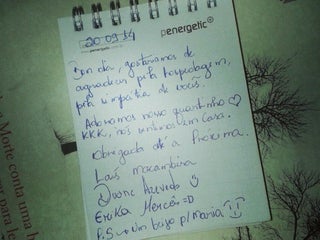 20 09 14
penergetic®
www.penergetic.com.br
Bom dia, gostaríamos de
agradecer pela hospedagem,
pela simpatia de vocês.
Adoramos nosso quartinho ♡
KKK, nos sentimos em casa.
Obrigada até a Próxima.
Laís macambira
Duane Azevedo
Erika =D
P.S: um beijo p/ Mania
Morte conta uma h
para le